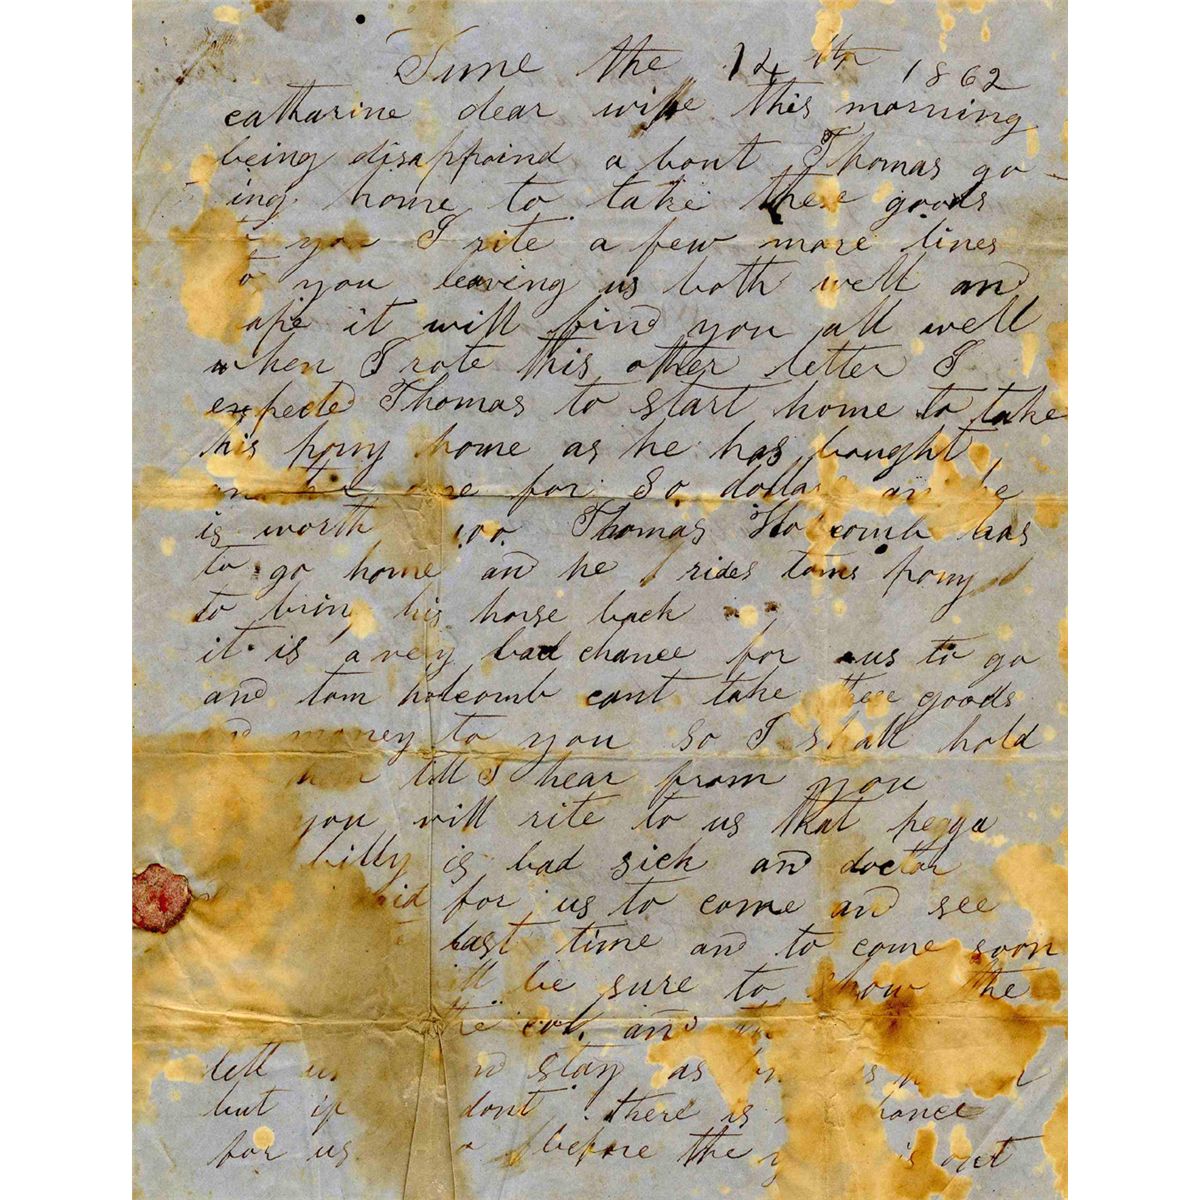 June the 12 th 1862
catharine dear wife this morning
being disappoind a bout Thomas go
ing home to take these goods
you I rite a few more lines
to you leaving us both well and
it will find you all well
when I rote this other letter I
expected Thomas to start home to take
his pony home as he has bought
for 80 dollars an he
is worth 100. Thomas Holcomb has
to go home and he rides toms pony
to bring his horse back
it is a very bad chance for us to go
and tom holcomb cant take these goods
and money to you so I shall hold
till I hear from you
you will rite to us that
billy is bad sick and doctor
said for us to come and see
last time and to come soon
be sure to show the
the col. and
tell us and stay as
but if dont there is chance
for us before the is out